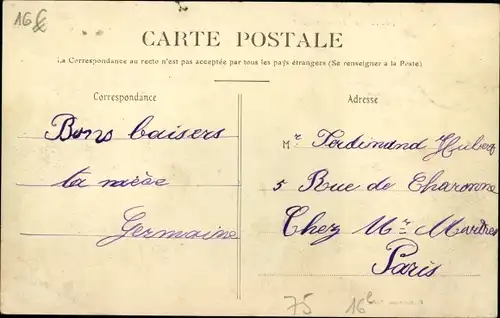 16
CARTE POSTALE
La Correspondance au recto n'est pas acceptée par tous les pays étrangers (Se renseigner à la Poste)
Correspondance
Adresse
Bons baisers
ta nièce
Germaine
Mr Ferdinand
5 Rue de Charonne
Chez Mr
Paris
75